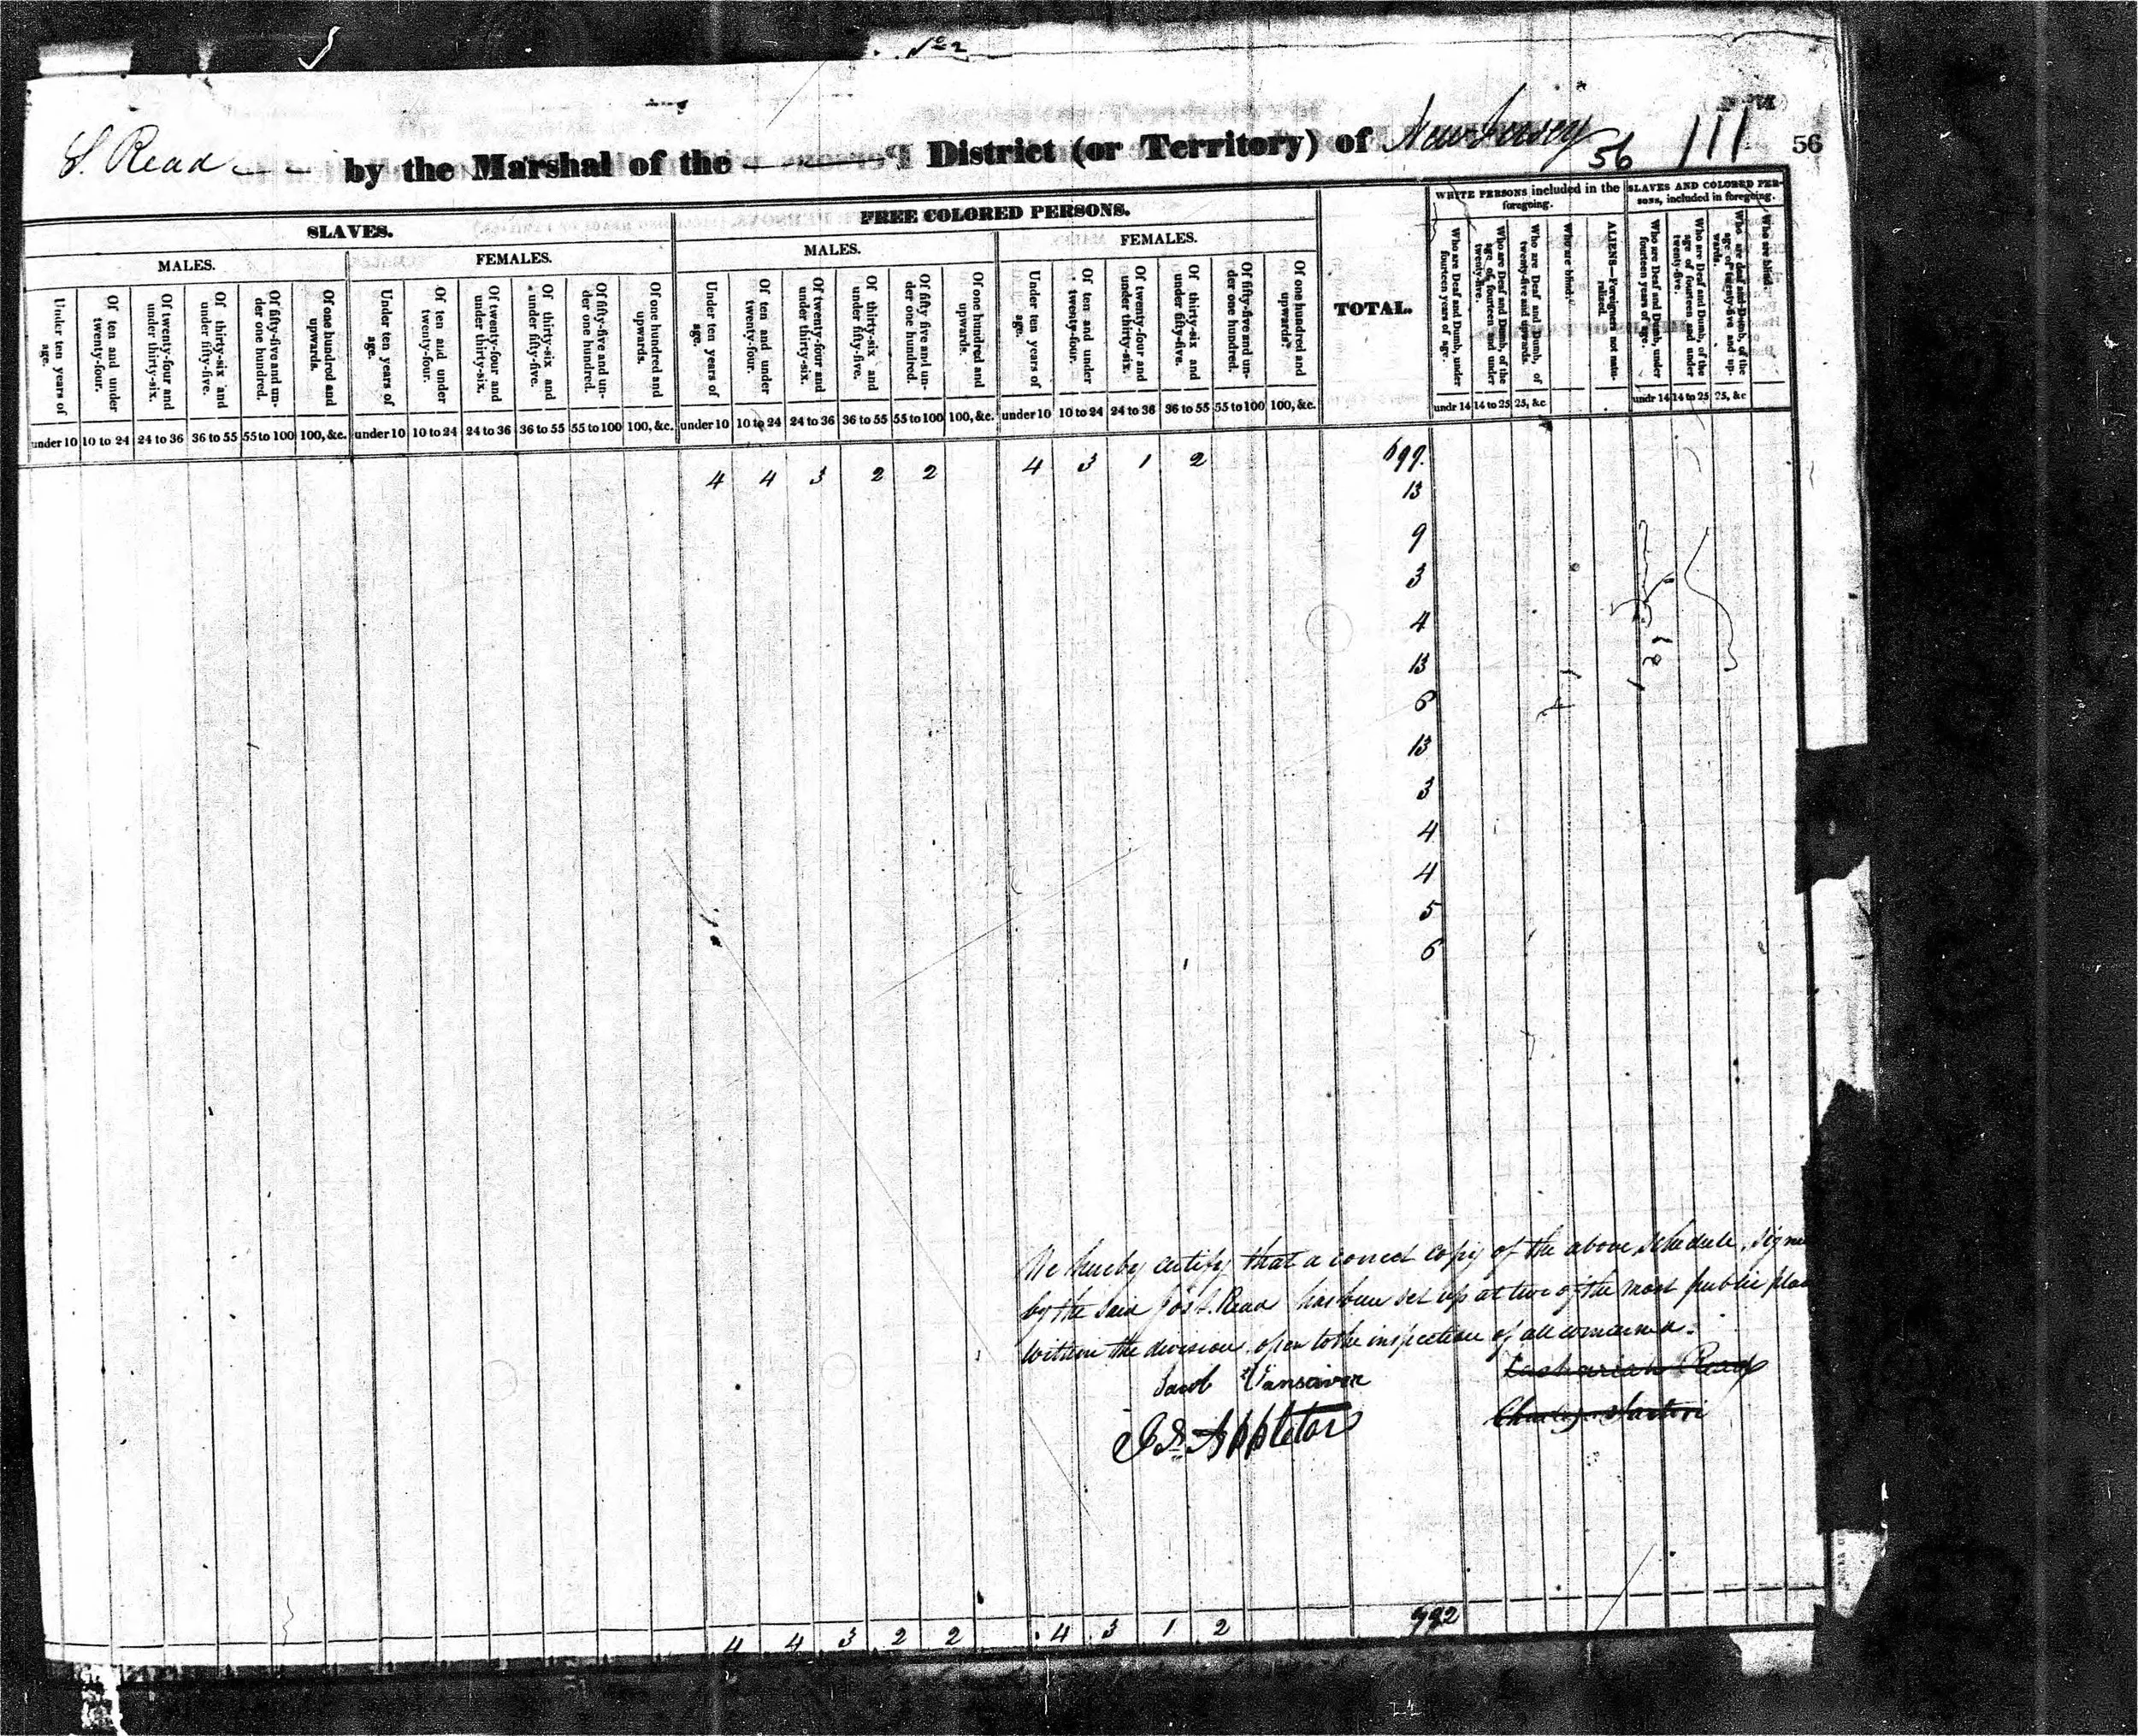 No 2
S. Read by the Marshal of the District (or Territory) of New Jersey 56 111 56
SLAVES. FREE COLORED PERSONS. TOTAL. WHITE PERSONS included in the foregoing. SLAVES AND COLORED PERSONS, included in foregoing.
MALES. FEMALES. MALES. FEMALES.
Under ten years of age. Of ten and under twenty-four. Of twenty-four and under thirty-six. Of thirty-six and under fifty-five. Of fifty-five and under one hundred. Of one hundred and upwards. Under ten years of age. Of ten and under twenty-four. Of twenty-four and under thirty-six. Of thirty-six and under fifty-five. Of fifty-five and under one hundred. Of one hundred and upwards. Under ten years of age. Of ten and under twenty-four. Of twenty-four and under thirty-six. Of thirty-six and under fifty-five. Of fifty five and under one hundred. Of one hundred and upwards. Under ten years of age. Of ten and under twenty-four. Of twenty-four and under thirty-six. Of thirty-six and under fifty-five. Of fifty-five and under one hundred. Of one hundred and upwards. Who are Deaf and Dumb, under fourteen years of age. Who are Deaf and Dumb, of the age of fourteen and under twenty-five. Who are Deaf and Dumb, of twenty-five and upwards. Who are blind. ALIENS—Foreigners not naturalized. Who are Deaf and Dumb, under fourteen years of age. Who are Deaf and Dumb, of the age of fourteen and under twenty-five. Who are deaf and Dumb, of the age of twenty-five and upwards. Who are blind.
under 10 10 to 24 24 to 36 36 to 55 55 to 100 100, &c. under 10 10 to 24 24 to 36 36 to 55 55 to 100 100, &c. under 10 10 to 24 24 to 36 36 to 55 55 to 100 100, &c. under 10 10 to 24 24 to 36 36 to 55 55 to 100 100, &c. undr 14 14 to 25 25, &c undr 14 14 to 25 25, &c
4 4 3 2 2 4 3 1 2 699.
13
9
3
4
13
6
13
3
4
4
5
6
We hereby certify that a correct copy of the above schedule, signe
by the said Jos S. Read has been set up at two of the most public plac
within the division open to the inspection of all concerned.
Jacob Vansciver Zachariah Read
Appleton Charles Sartori
4 4 3 2 2 4 3 1 2 792